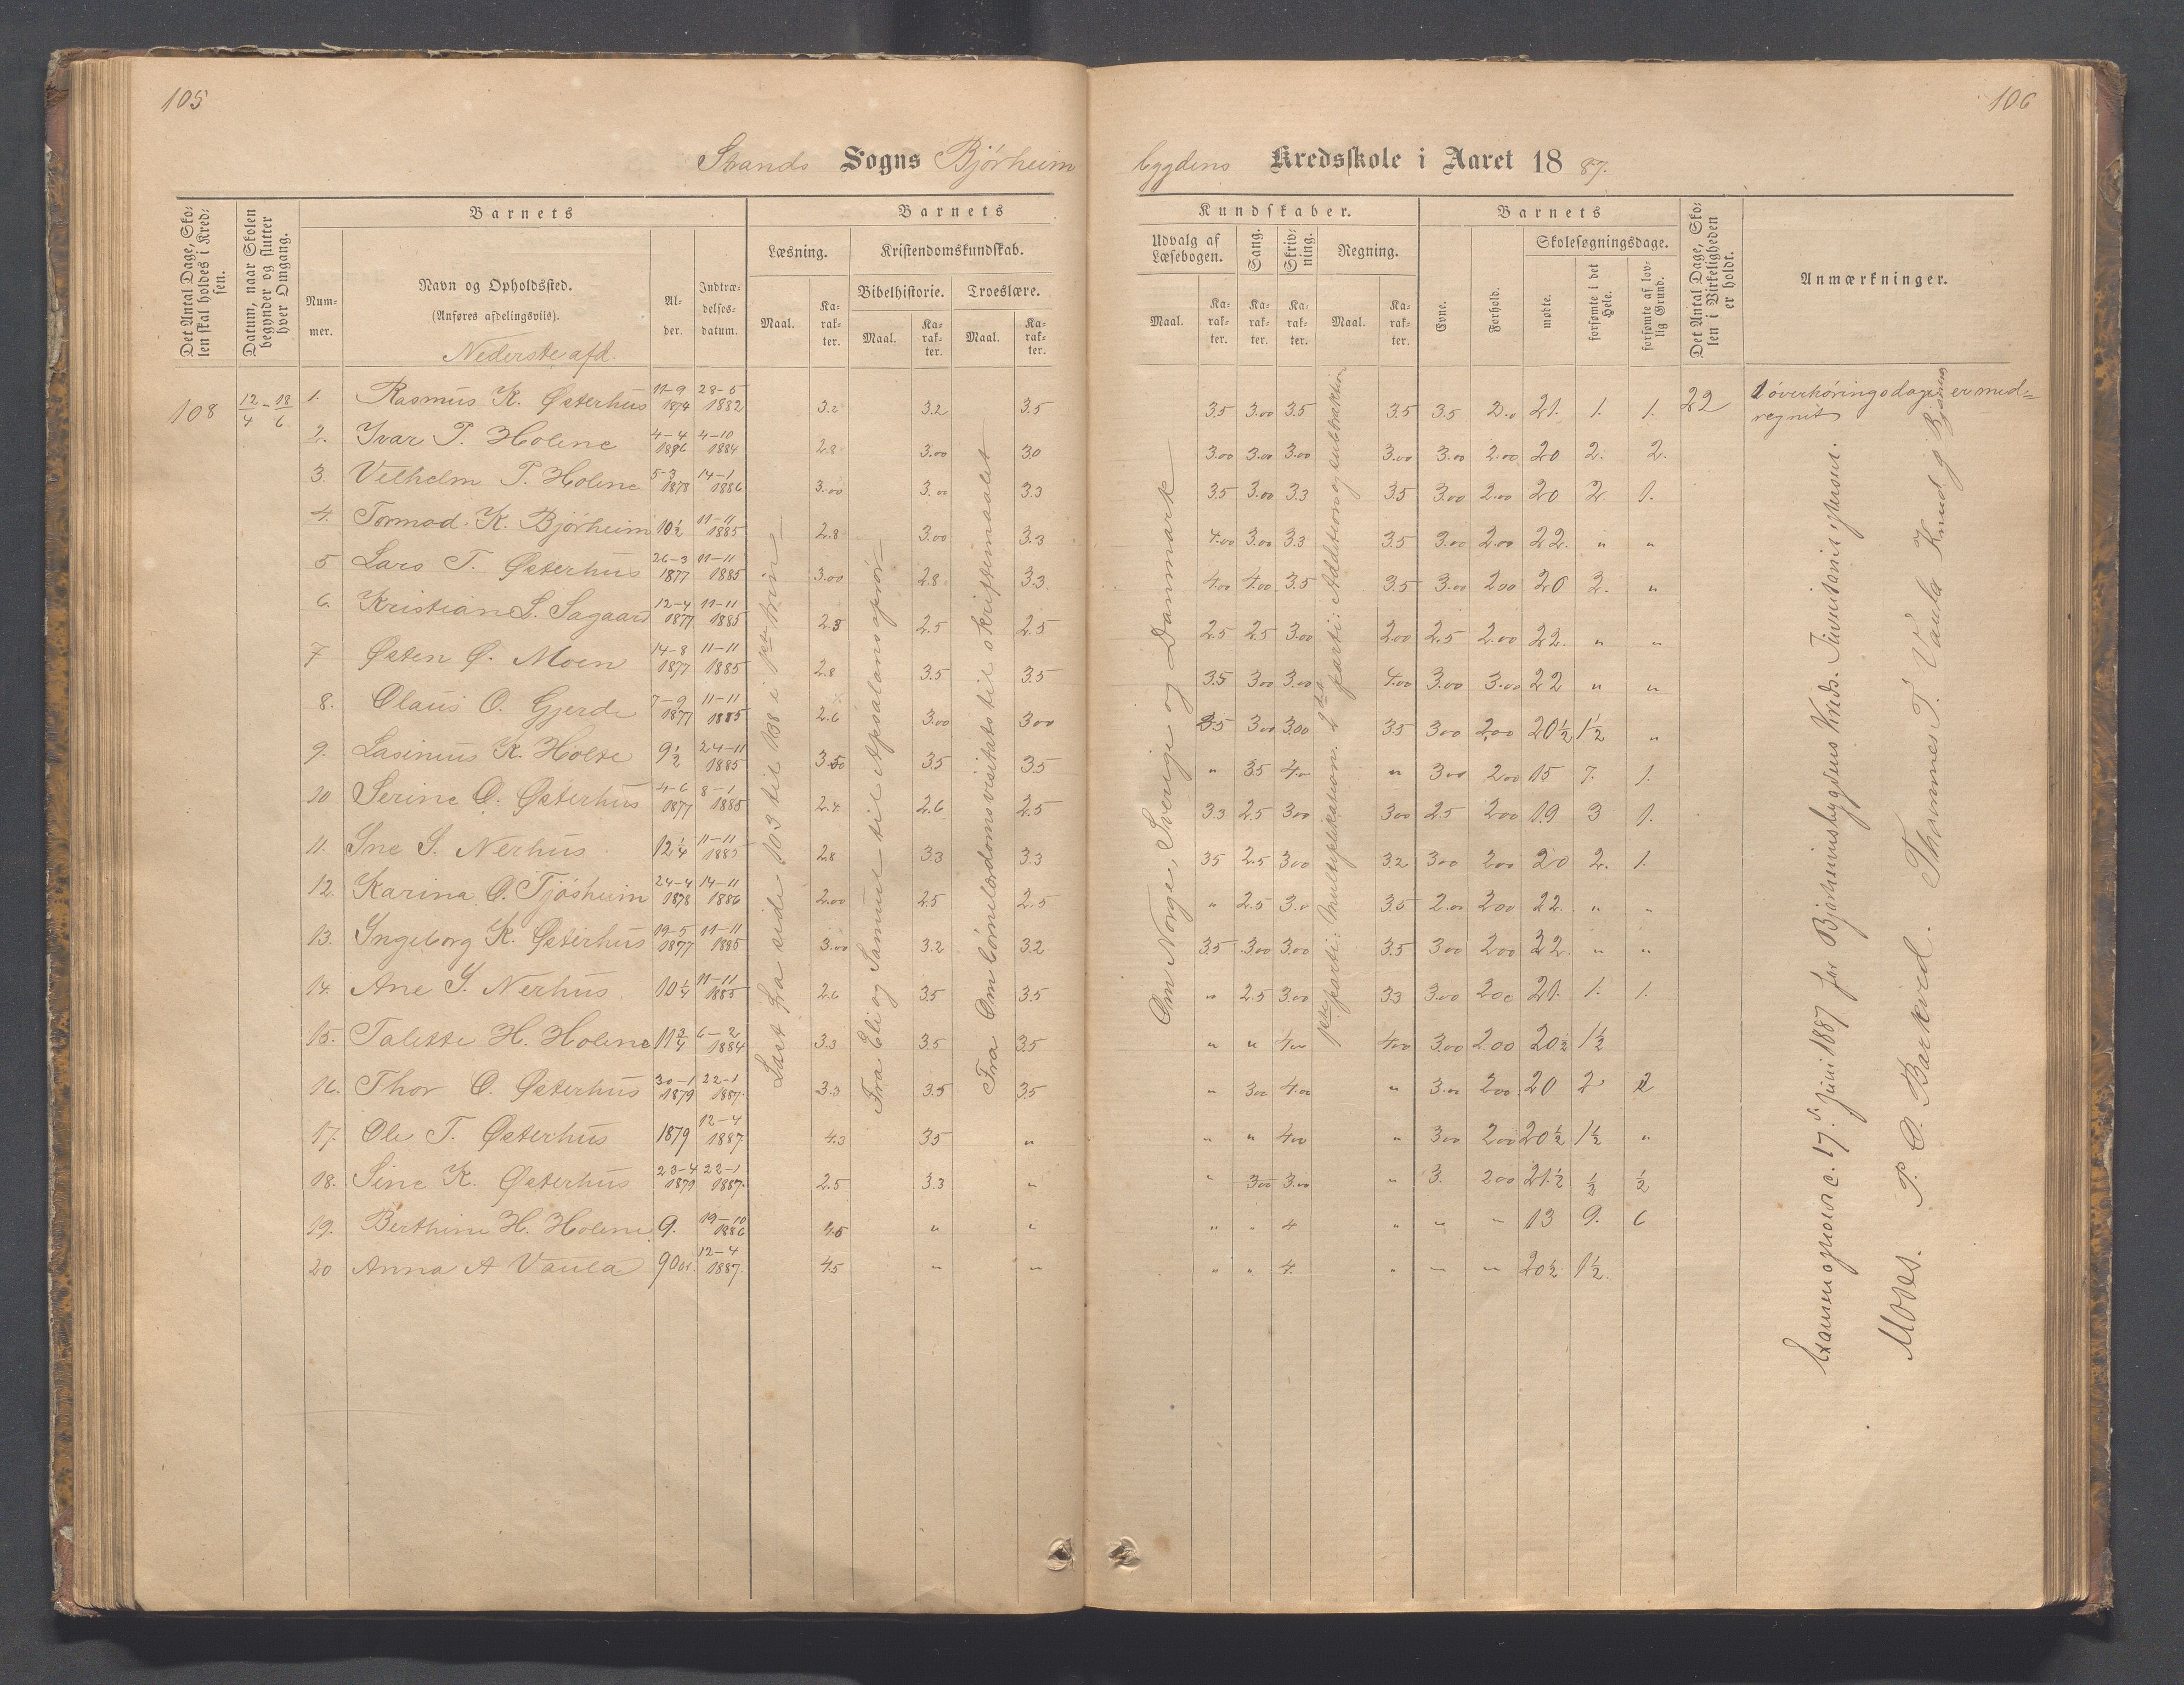 105
106
Strands Sogns Bjørheim
bygdens Kredsskole i Aaret 1887.
Det Antal Dage, Skolen skal holdes i Kredsen.
Datum, naar Skolen begynder og slutter hver Omgang.
Barnets
Nummer.
Navn og Opholdssted.
(Anføres afdelingsviis).
Nederste afd.
Alder.
Indtrædelsesdatum.
Barnets
Læsning.
Kristendomskundskab.
Bibelhistorie. Troeslære.
Maal. Karakter. Maal. Karakter. Maal. Karakter.
Kundskaber.
Udvalg af Læsebogen. Sang. Skrivning. Regning.
Maal. Karakter. Karakter. Karakter. Maal. Karakter.
Barnets
Evne. Forhold.
Skolesøgningsdage.
mødte. forsømte i det Hele. forsømte af lovlig Grund.
Det Antal Dage, Skolen i Virkeligheden er holdt.
Anmærkninger.
108 12/4 - 18/6 1. Rasmus K. Østerhus 11-9 1874 28-5 1882 3.2 3.2 3.5 3.5 3.00 3.5 3.5 3.5 2.0 21. 1. 1. 22 1 overhøringsdag er med=
regnet
2. Ivar P. Holene 4-4 1876 4-10 1884 2.8 3.00 3.0 3.00 3.00 3.00 3.00 3.00 2.00 20 2. 2.
3. Velhelm P. Holene 5-3 1878 14-1 1886 3.00 3.00 3.3 3.5 3.00 3.3 3.5 3.00 2.00 20 2 1.
4. Tormod K. Bjørheim 10½ 11-11 1885 2.8 3.00 3.3 4.00 3.00 3.3 3.5 3.00 2.00 22. " "
5 Lars T. Østerhus 26-3 1877 11-11 1885 3.00 2.8 3.3 4.00 4.00 3.5 3.5 3.00 2.00 20 2. "
6. Kristian S. Sagaard 12-4 1877 11-11 1885 2.5 2.5 2.5 2.5 2.5 3.00 2.00 2.5 2.00 22. " "
7 Østen Ø. Moen 14-8 1877 11-11 1885 2.8 3.5 3.5 3.5 3.00 3.00 4.00 3.00 3.00 22 " "
8. Olaus O. Gjerde 7-9 1877 11-11 1885 2.6 3.00 3.00 3.5 3.00 3.00 3.5 3.00 2.00 20½ 1½ "
9. Lasinius K. Holte 9½ 24-11 1885 3.50 3.5 3.5 " 3.5 4.00 " 3.00 2.00 15 7. 1.
10 Serine O. Østerhus 4-6 1877 8-1 1885 2.4 2.6 2.5 3.3 2.5 3.00 3.00 2.5 2.00 19 3 1.
11. Ine S. Nerhus 12¼ 11-11 1885 2.8 3.3 3.3 3.5 2.5 3.00 3.2 3.00 2.00 20 2. 1.
12. Karina O. Tjøsheim 24-4 1878 14-11 1886 2.00 2.5 2.5 " 2.5 3.0 3.5 2.00 2.00 22. " "
13. Ingeborg K. Østerhus 19-5 1877 11-11 1885 3.00 3.2 3.2 3.5 3.00 3.00 3.5 3.00 2.00 22. " "
14. Ane S. Nerhus 10¼ 11-11 1885 2.6 3.5 3.5 " 2.5 3.00 3.3 3.00 2.00 21. 1. 1.
15. Talette H. Holene 11¾ 6-2 1884 3.3 3.5 3.5 " " 4.00 4.00 3.00 2.00 20½ 1½
16. Thor O. Østerhus 30-1 1879 22-1 1887. 3.3 3.5 3.5 " 3.00 4.00 " 3.00 2.00 20 2 2
17. Ole T. Østerhus 1879 12-4 1887 4.3 3.5 " " " 4.00 " 3.00 2.00 20½ 1½ "
18. Sine K. Østerhus 23-4 1879 22-1 1887. 2.5 3.3 " " 3.00 3.00 " 3. 2.00 21½ ½ ½
19. Berthine H. Holene 9. 19-10 1886 4.5 " " " " 4 " " " 13 9. 6
20 Anna A Vaula 9 aar. 12-4 1887. 4.5 " " " " 4. " " " 20½ 1½.
Læst fra side 103 til 138 i 1ste trin
Fra Eli og Samuel til Absalans oprør
Fra Om børnelærdoms visitats til skriftemaalet
Om Norge, Sverige og Danmark
1ste parti: Multiplikation. 2det parti: Addition og subtraktion
Examensprøve 17. juni 1887 for Bjørheimsbygdens Kreds.
Moses. P. O. Barkved. Thormes T. Vaula Knud G Bjørheim